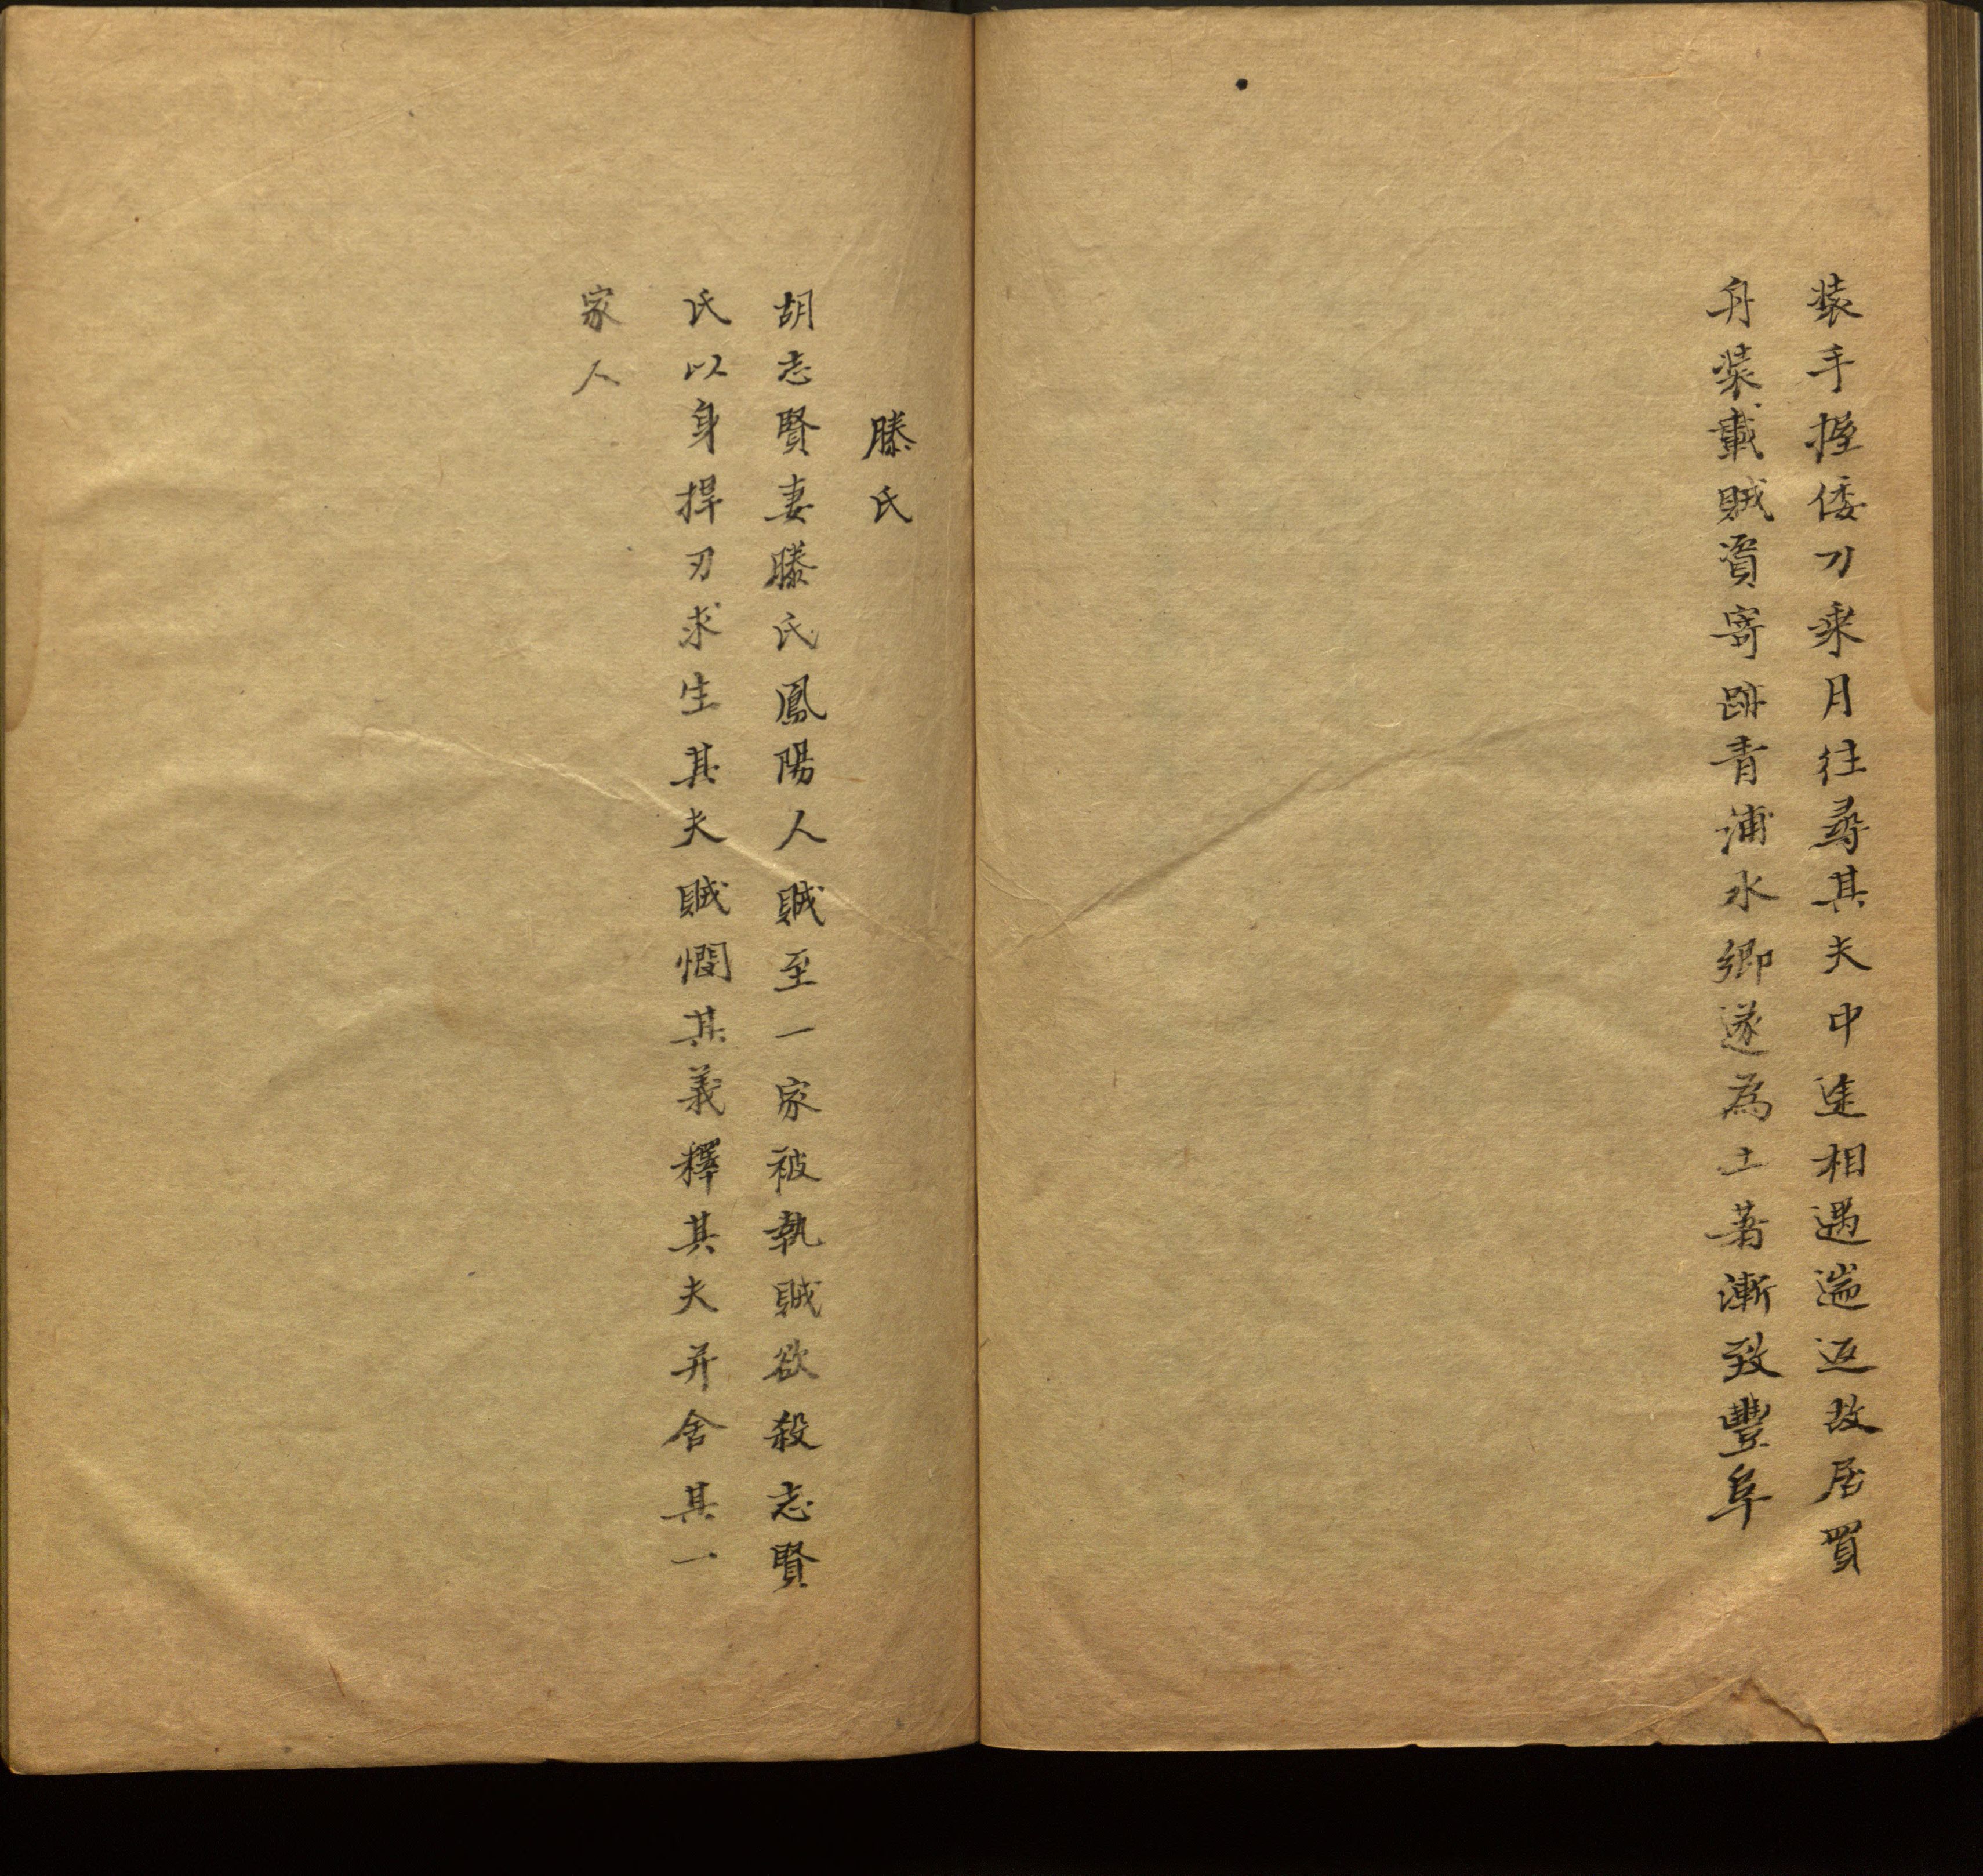 装手握倭刀乘月往尋其夫中途相遇遄返故居買
舟装載賊資寄跡青浦水鄉遂為土著漸致豐阜
滕氏
胡志賢妻滕氏鳳陽人賊至一家被執賊欲殺志賢
氏以身捍刃求生其夫賊憫其義釋其夫并舍其一
家人